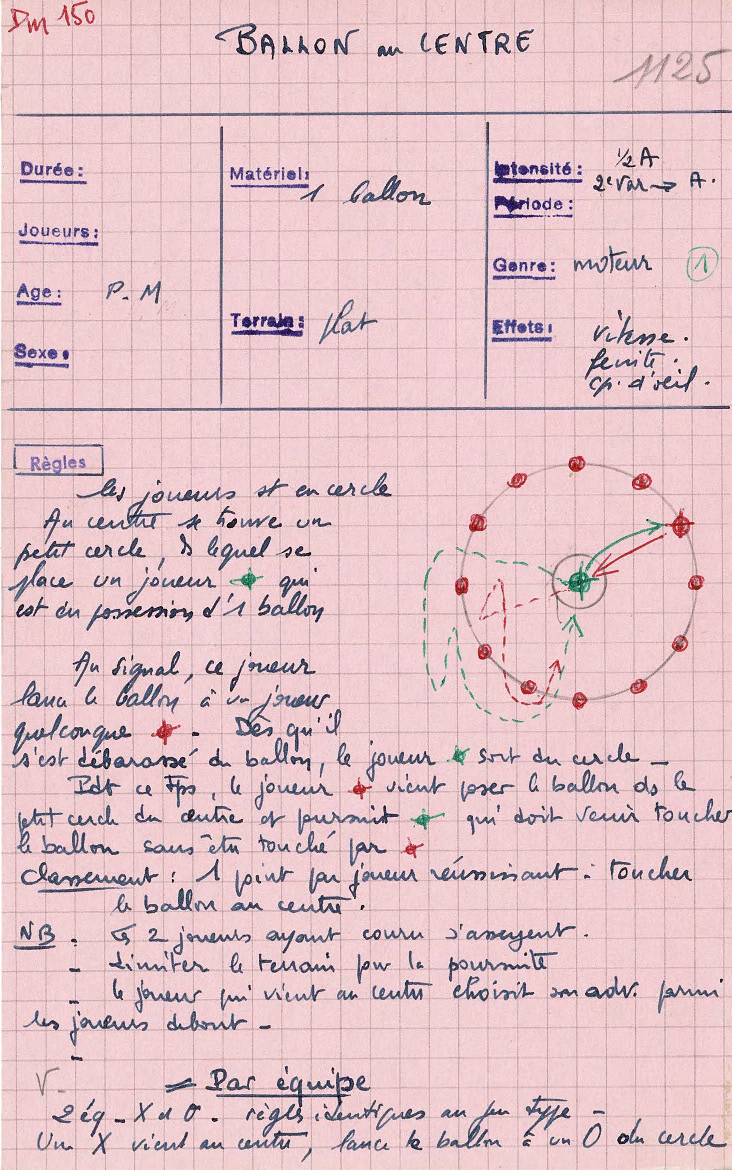 Dm 150
BALLON au CENTRE
1125
Durée:
Joueurs:
Age: P. M
Sexe:
Matériel:
1 ballon
Terrain: plat
Intensité: 1/2 A
2e Var → A.
Période:
Genre: moteur 1
Effets: vitesse.
feinte.
cp. d'oeil.
Règles
les joueurs st en cercle
Au centre se trouve un
petit cercle, ds lequel se
place un joueur qui
est en possession d'1 ballon
Au signal, ce joueur
lance le ballon à un joueur
quelconque . Dès qu'il
s'est débarassé du ballon, le joueur sort du cercle _
Pdt ce tps, le joueur vient poser le ballon ds le
ptit cercle du centre et poursuit qui doit venir toucher
le ballon sans être touché par
Classement : 1 point par joueur réussissant à toucher
le ballon au centre.
NB : 2 joueurs ayant couru s'asseyent.
- Limiter le terrain pour la poursuite
- le joueur qui vient au centre choisit son adv. parmi
les joueurs debout -
-
V - = Par équipe
2 éq - X et O - règles identiques au jeu type -
Un X vient au centre, lance le ballon à un O du cercle